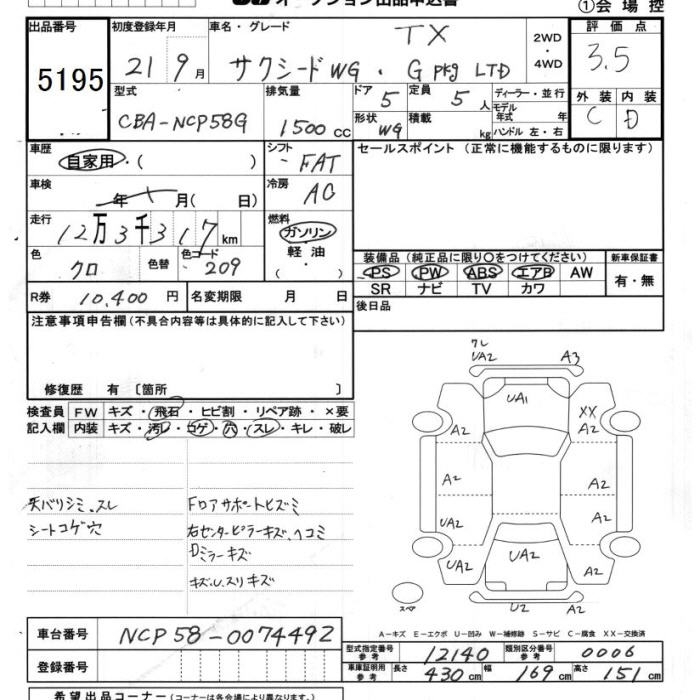 オークション出品申込書
①会場控
出品番号 初度登録年月 車名・グレード 評価点
5195 21 9月 TX 2WD 3.5
サクシードWG・G pkg LTD ・4WD
型式 排気量 ドア 定員 ディーラー・並行 外装 内装
CBA-NCP58G 1500cc 5 5人 モデル年式 年 C D
形状 積載 WG kg ハンドル 左・右
車歴 シフト セールスポイント (正常に機能するものに限ります)
自家用・( ) FAT
車検 冷房
年 月( 日) AC
走行 燃料
12万3千317km ガソリン
色 色替 色コード ・軽油・
クロ 209 ( )
装備品 (純正品に限り○をつけてください) 新車保証書
PS PW ABS エアB AW 有・無
SR ナビ TV カワ
R券 10,400円 名変期限 月 日 後日品
注意事項申告欄 (不具合内容等は具体的に記入して下さい)
修復歴 有〔箇所 〕
検査員 FW キズ・飛石・ヒビ割・リペア跡・×要
記入欄 内装 キズ・汚レ・コゲ・穴・スレ・キレ・破レ
天バリシミ、スレ
シートコゲ穴
Fロアサポートヒズミ
右センターピラーキズ、ヘコミ
Dミラーキズ
キズ、U、スリキズ
UA2 A3
UA1
A2 XX A2
A2 A2
UA2 A2
UA2 UA2 UA2
U2
スペア
A-キズ E-エクボ U-凹み W-補修跡 S-サビ C-腐食 XX-交換済
車台番号 NCP58-0074492
登録番号
型式指定番号 参考 12140 類別区分番号 参考 0006
車庫証明用 参考 長さ 430cm 幅 169cm 高さ 151cm
希望出品コーナー (コーナーは各会場により異なります。)